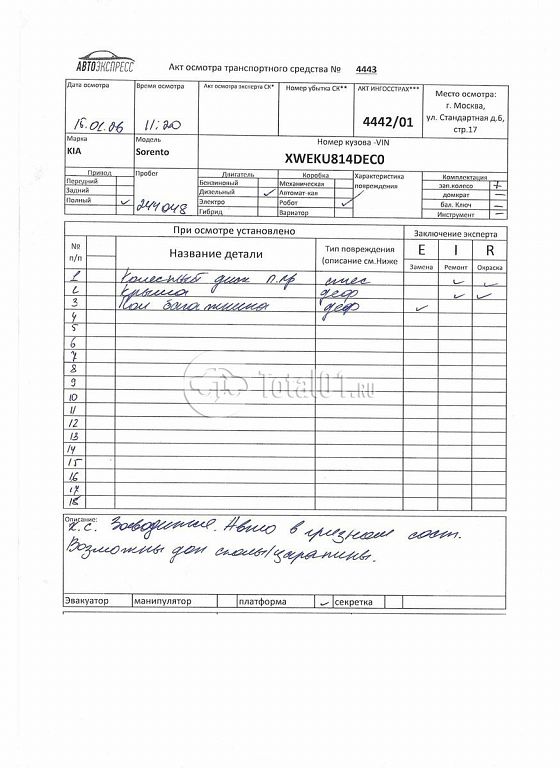 АВТОЭКСПРЕСС
Акт осмотра транспортного средства № 4443
Дата осмотра
Время осмотра
Акт осмотра эксперта СК*
Номер убытка СК**
АКТ ИНГОССТРАХ***
Место осмотра:
г. Москва,
ул. Стандартная д.6,
стр.17
11:20
4442/01
Марка
Модель
Номер кузова -VIN
KIA
Sorento
XWEKU814DEC0
Привод
Пробег
Двигатель
Коробка
Характеристика
повреждения
Комплектация
Передний
Бензиновый
Механическая
зап.колесо +
Задний
Дизельный ✓
Автомат-кая
домкрат –
Полный ✓
244048
Электро
Робот ✓
бал. Ключ –
Гибрид
Вариатор
Инструмент –
При осмотре установлено
Заключение эксперта
№
п/п
Название детали
Тип повреждения
(описание см.Ниже
E I R
Замена Ремонт Окраска
1 Колесный диск п.пр ✓ ✓
2 Крыша деф ✓ ✓
3 Пол багажника деф ✓
4
5
6
7
8
9
10
11
12
13
14
15
16
17
18
Total01.RU
Описание:
Заводится. Авто в грязном сост.
Возможны доп сколы/царапины.
Эвакуатор манипулятор платформа ✓ секретка